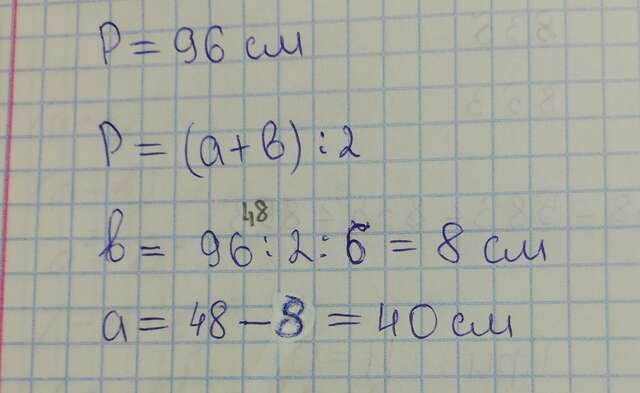 P = 96 см
P = (a + b) : 2
48
b = 96 : 2 : 6 = 8 см
a = 48 - 8 = 40 см